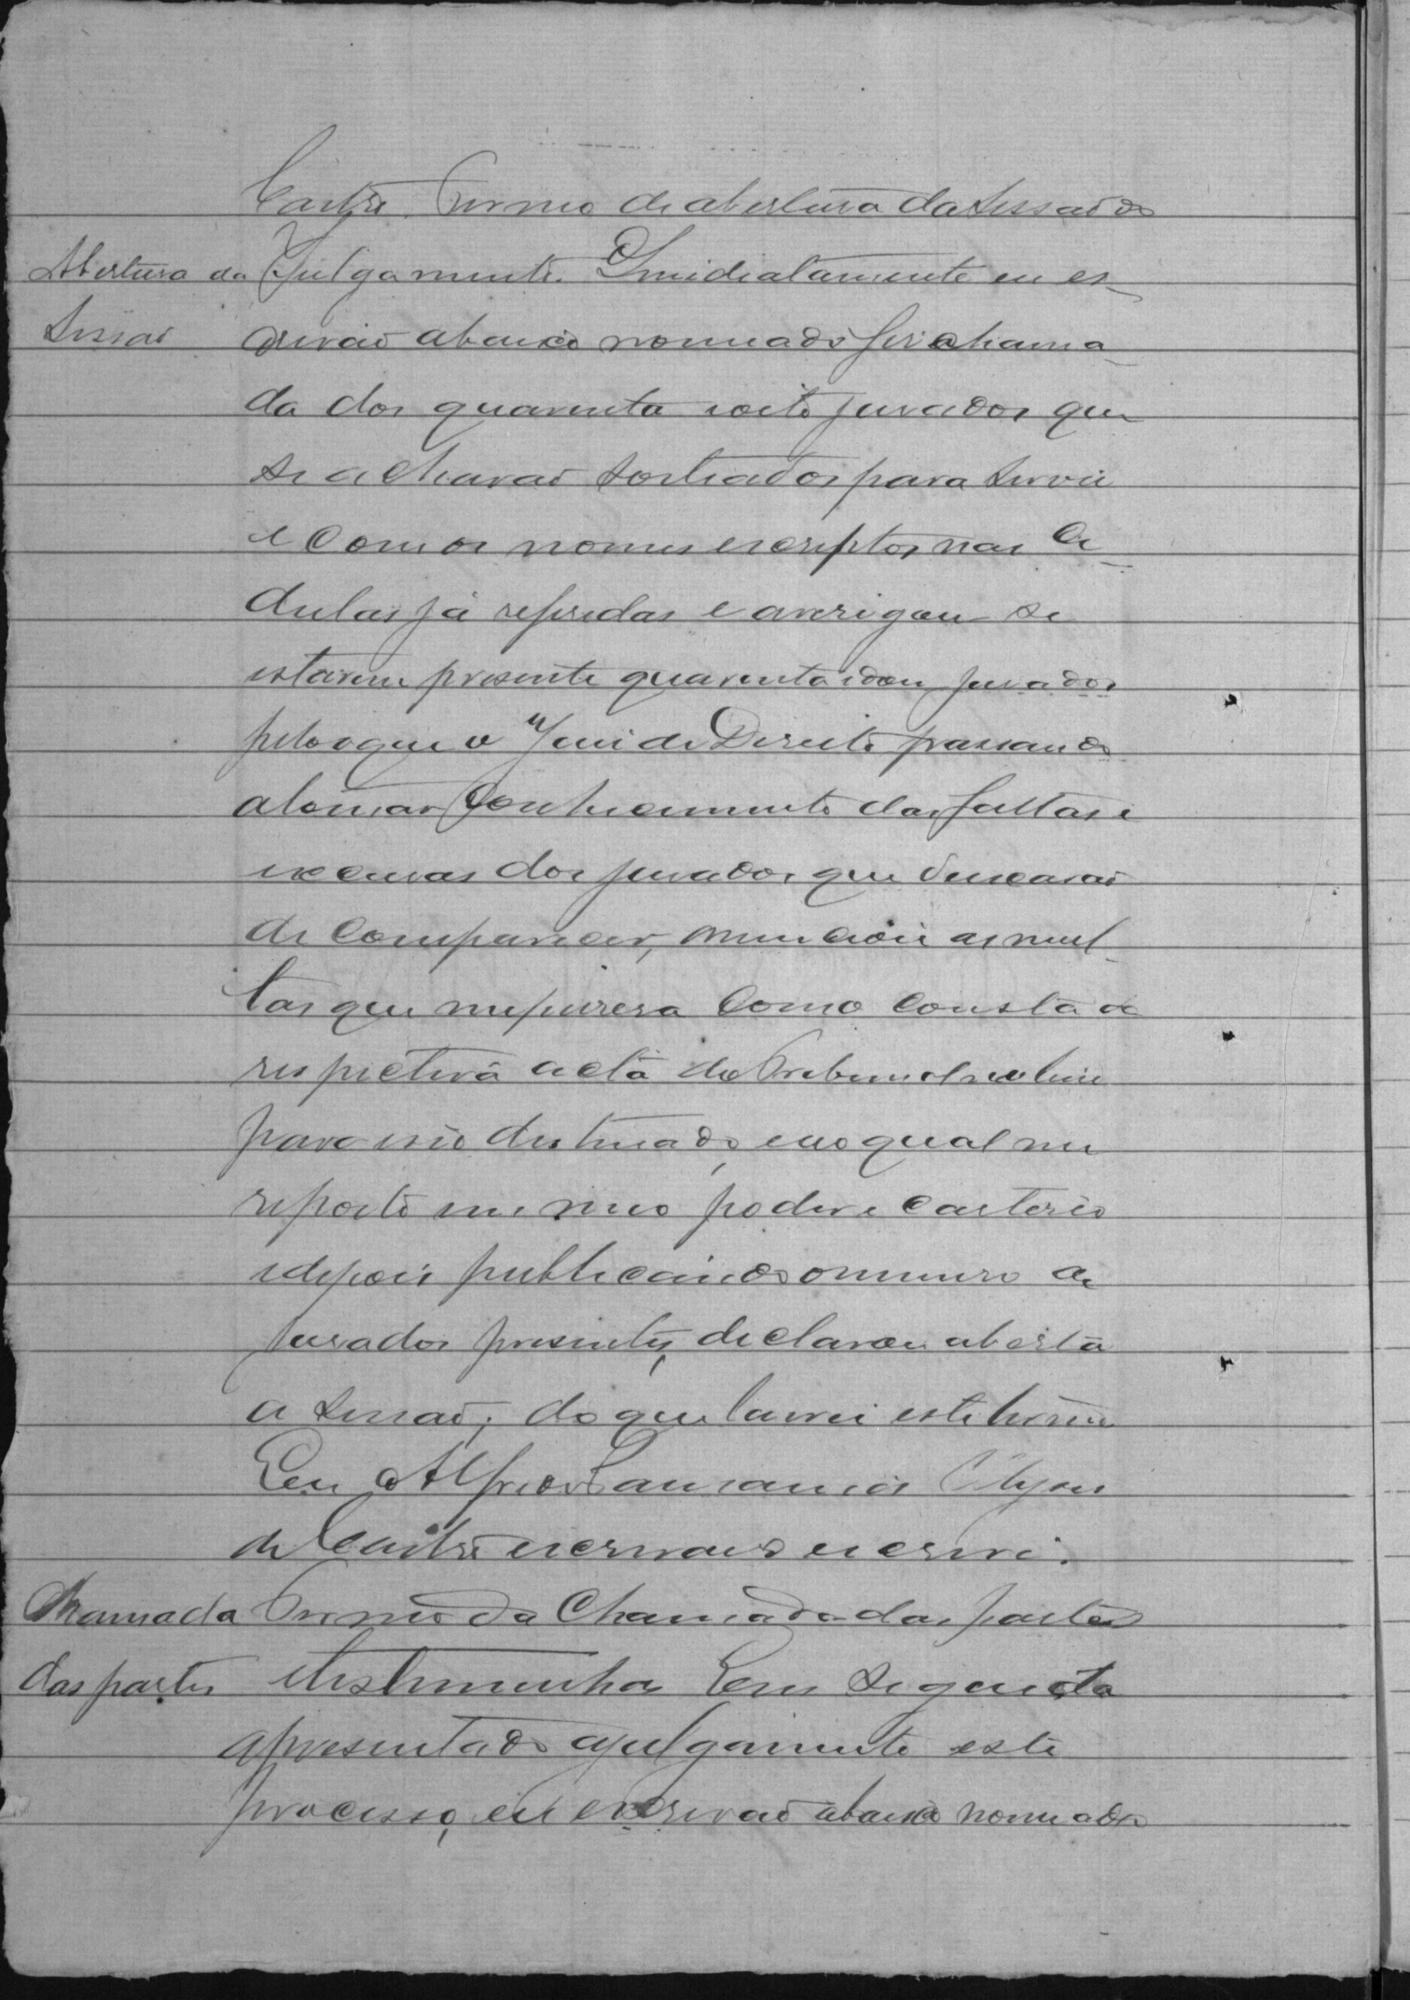 Castro. Termo de abertura da Sessão do
Abertura da Julgamento. Immidiatamente eu es-
Sessão crivão abaixo nomeado fiz a chama-
da dos quarenta e oito jurados que
se achavão sorteados para servir
e com os nomes escriptos nas ce-
dulas já referidas e averigou se
estarem presente quarenta e dou jurados
pelo que o Juiz de Direito passando
a tomar conhecimento das faltas e
excusas dos jurados que deixarão
de comparecer, annunciou as mul-
tas que impusera como consta da
respectiva acta do Tribunal no livro
para isso destinado, e ao qual me
reporto em meo poder e cartorio
e depois publicando o numero de
jurados presentes, declarou aberta
a sessão; do que lavrei este termo
Eu Alfredo Ulysses
de Castro escrivão escrevi.
Chamada Termo da Chamada das partes
das partes e testemunhas Em seguida
apresentado a julgamento este
processo, eu escrivão abaixo nomeado